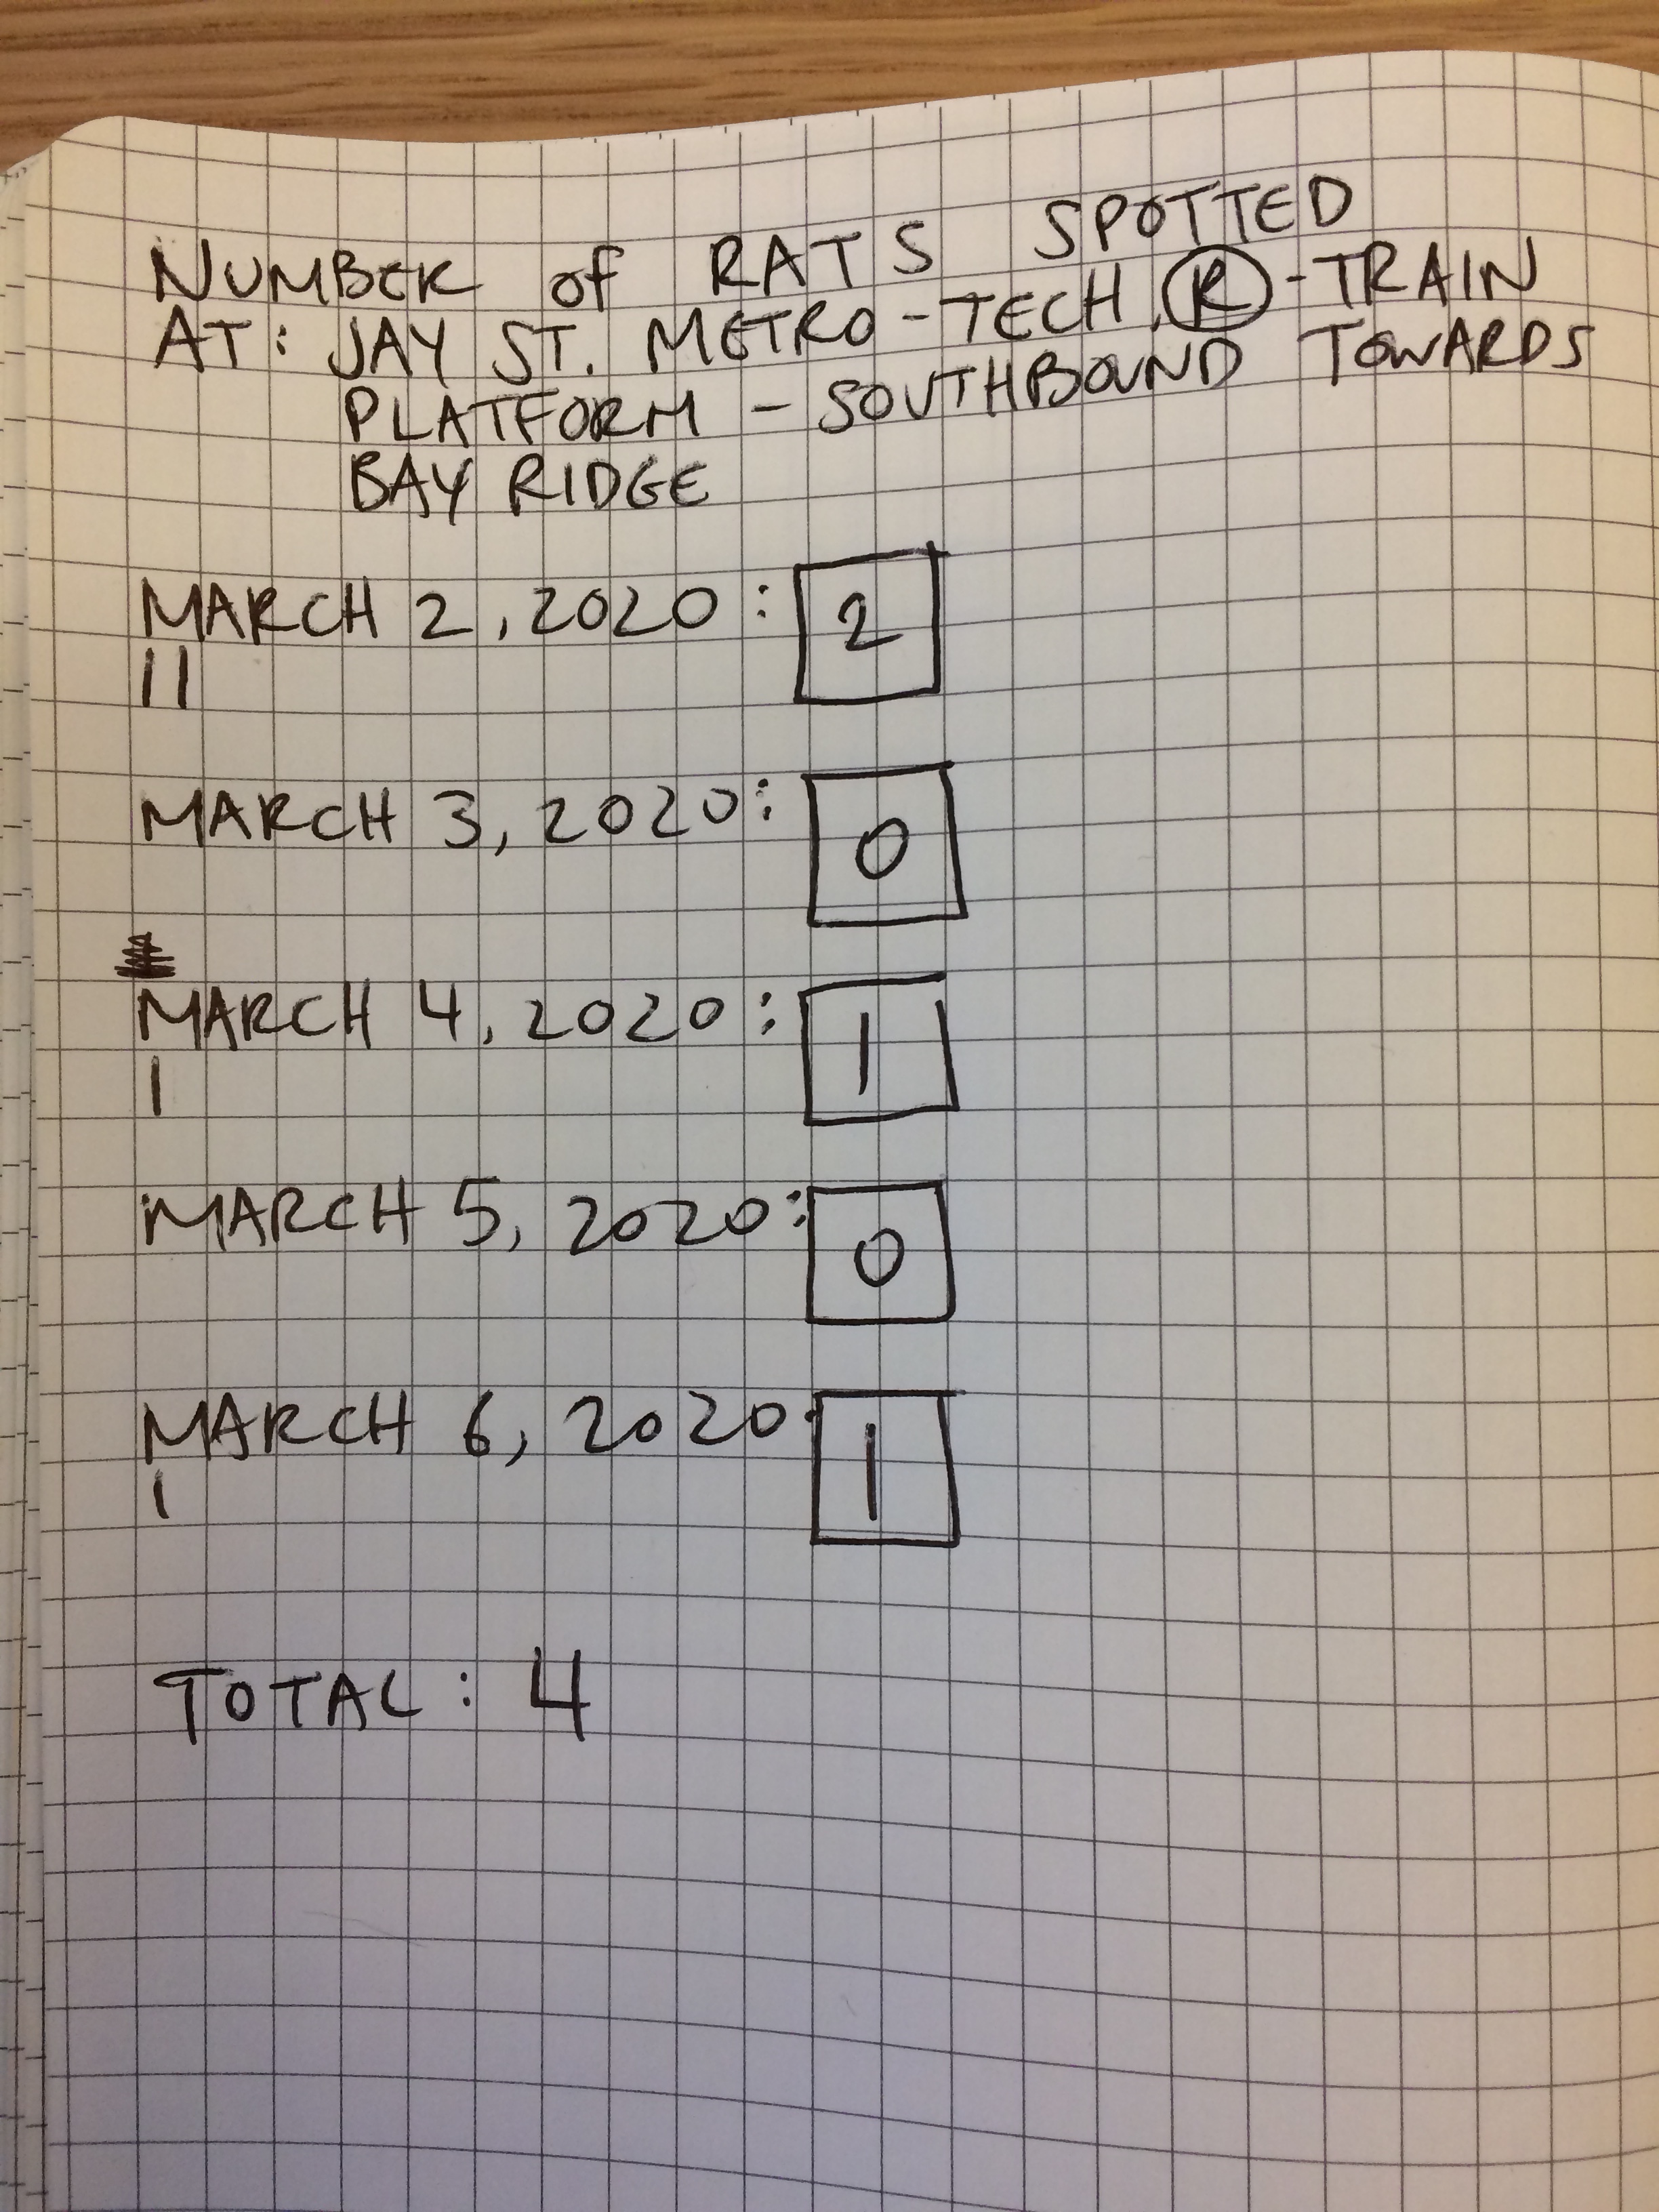 NUMBER of RATS SPOTTED
AT: JAY ST. METRO-TECH, R-TRAIN
PLATFORM - SOUTHBOUND TOWARDS
BAY RIDGE
MARCH 2, 2020: 2
II
MARCH 3, 2020: 0
MARCH 4, 2020: 1
I
MARCH 5, 2020: 0
MARCH 6, 2020: 1
I
TOTAL: 4